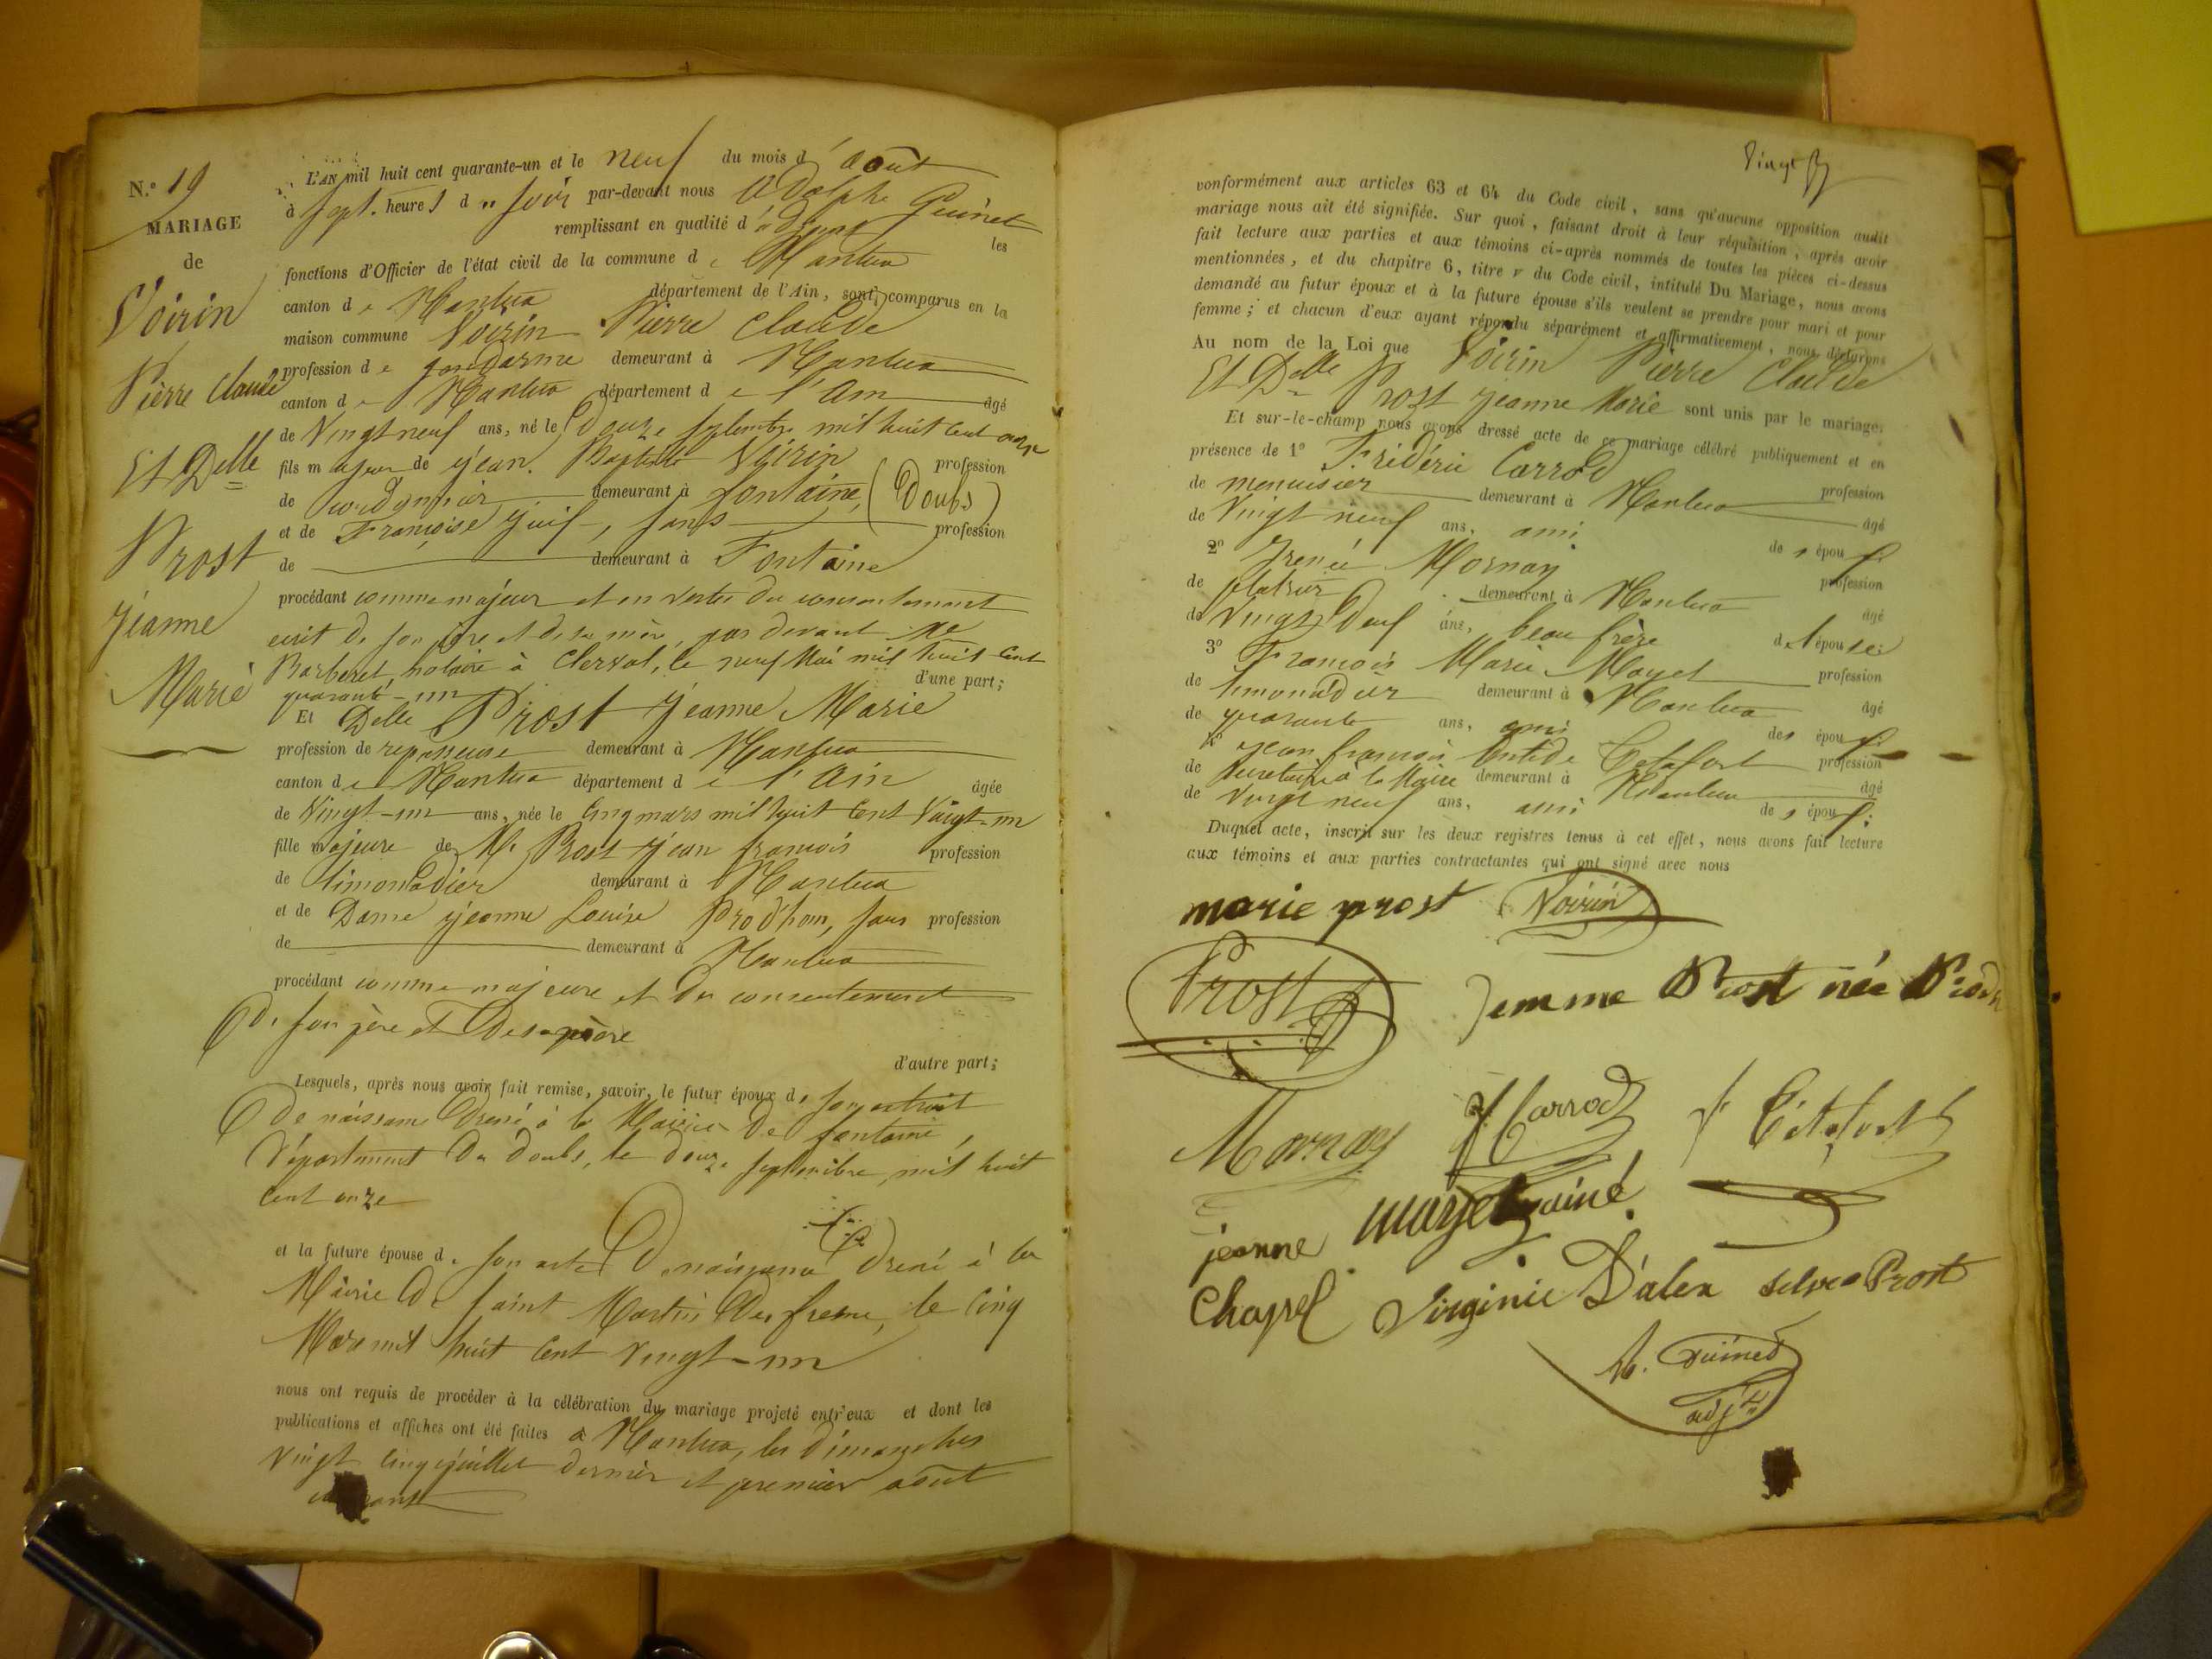 N.° 19
MARIAGE
de
Voirin
Pierre Claude
Et Delle
Prost
jeanne
Marie
L'AN mil huit cent quarante-un et le neuf du mois d'août
à sept heures d u soir par-devant nous Adolphe Guinet
remplissant en qualité d'adjoint les
fonctions d'Officier de l'état civil de la commune d e Mantua
canton d e Mantua département de l'Ain, sont comparus en la
maison commune Voirin Pierre Claude
profession d e gendarme demeurant à Mantua
canton d e Mantua département d e l'Ain âgé
de Vingt neuf ans, né le douze septembre mil huit cent onze
fils majeur de jean Baptiste Voirin profession
de cordonnier demeurant à fontaine, (Doubs)
et de Françoise juif, sans profession
de demeurant à Fontaine
procédant comme majeur et en vertu du consentement
écrit de son père et de sa mère, par devant me
Barberet, notaire à Clerval, le neuf Mai mil huit cent
quarante-un d'une part;
Et Delle Prost jeanne Marie
profession de repasseuse demeurant à Mantua
canton d e Mantua département d e l'Ain âgée
de Vingt-un ans, née le cinq mars mil huit cent Vingt-un
fille majeure de Mr Prost jean françois profession
de limonadier demeurant à Mantua
et de Dame jeanne Louise Prod'hon, sans profession
de demeurant à Mantua
procédant comme majeure et du consentement
de son père et de sa mère
d'autre part;
Lesquels, après nous avoir fait remise, savoir, le futur époux de son extrait
de naissance dressé à la Mairie de fontaine,
département du doubs, le douze septembre, mil huit
cent onze
et la future épouse de son acte de naissance dressé à la
Mairie de saint Martin du fresne, le cinq
Mars mil huit cent vingt-un
nous ont requis de procéder à la célébration du mariage projeté entr'eux et dont les
publications et affiches ont été faites à Mantua, les dimanches
vingt cinq juillet dernier et premier août
courant
vonformément aux articles 63 et 64 du Code civil, sans qu'aucune opposition audit
mariage nous ait été signifiée. Sur quoi, faisant droit à leur réquisition, après avoir
fait lecture aux parties et aux témoins ci-après nommés de toutes les pièces ci-dessus
mentionnées, et du chapitre 6, titre v du Code civil, intitulé Du Mariage, nous avons
demandé au futur époux et à la future épouse s'ils veulent se prendre pour mari et pour
femme; et chacun d'eux ayant répondu séparément et affirmativement, nous déclarons
Au nom de la Loi que Voirin Pierre Claude
Et Delle Prost jeanne Marie sont unis par le mariage.
Et sur-le-champ nous avons dressé acte de ce mariage célébré publiquement et en
présence de 1° Frédéric Carrod profession
de menuisier demeurant à Mantua âgé
de Vingt neuf ans, ami des époux.
2° Irenée Mornay profession
de platrier demeurant à Mantua âgé
de Vingt Neuf ans, beau frère de l'épouse.
3° François Marie Mayet profession
de limonadier demeurant à Mantua âgé
de quarante ans, ami des époux.
4° jean françois Catafort profession
de secretaire à la Mairie demeurant à Mantua âgé
de Vingt neuf ans, ami des époux.
Duquel acte, inscrit sur les deux registres tenus à cet effet, nous avons fait lecture
aux témoins et aux parties contractantes qui ont signé avec nous
marie prost Voirin
Prost femme Prost née Prodh
Mornay f Carrod f Catafort
jeanne mayet ainé
Chapel Virginie Dalex Prost
A. Guinet
adjt